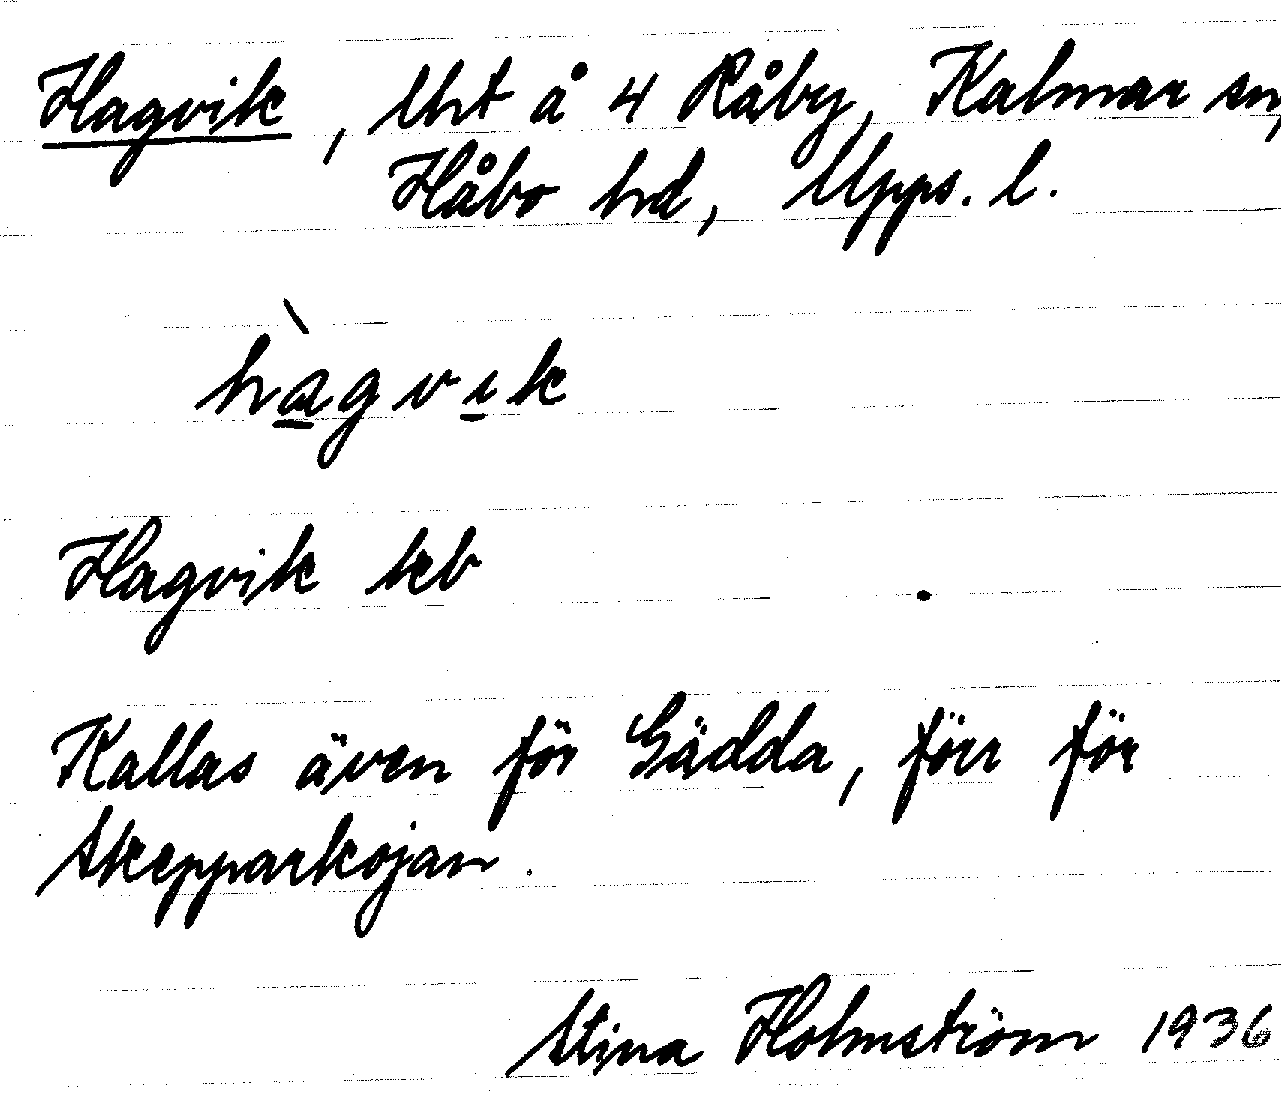 Hagvik, lht å 4 Råby, Kalmar sn,
Håbo hd, Upps. l.
hàgvik
Hagvik kb
Kallas även för Gädda, förr för
Skepparkojan.
Stina Holmström 1936